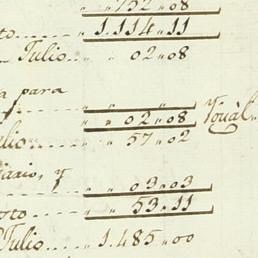 „ 752 „ 08
to..... 1.114 „ 11
Julio.. „ 02 „ 08
a para
„ „ „
„ 02 „ 08 Ygual
lio.... „ 57 „ 02
iario, y
..... „ 03 „ 03
oto.... „ 53 „ 11
Julio... 1.485 „ 00